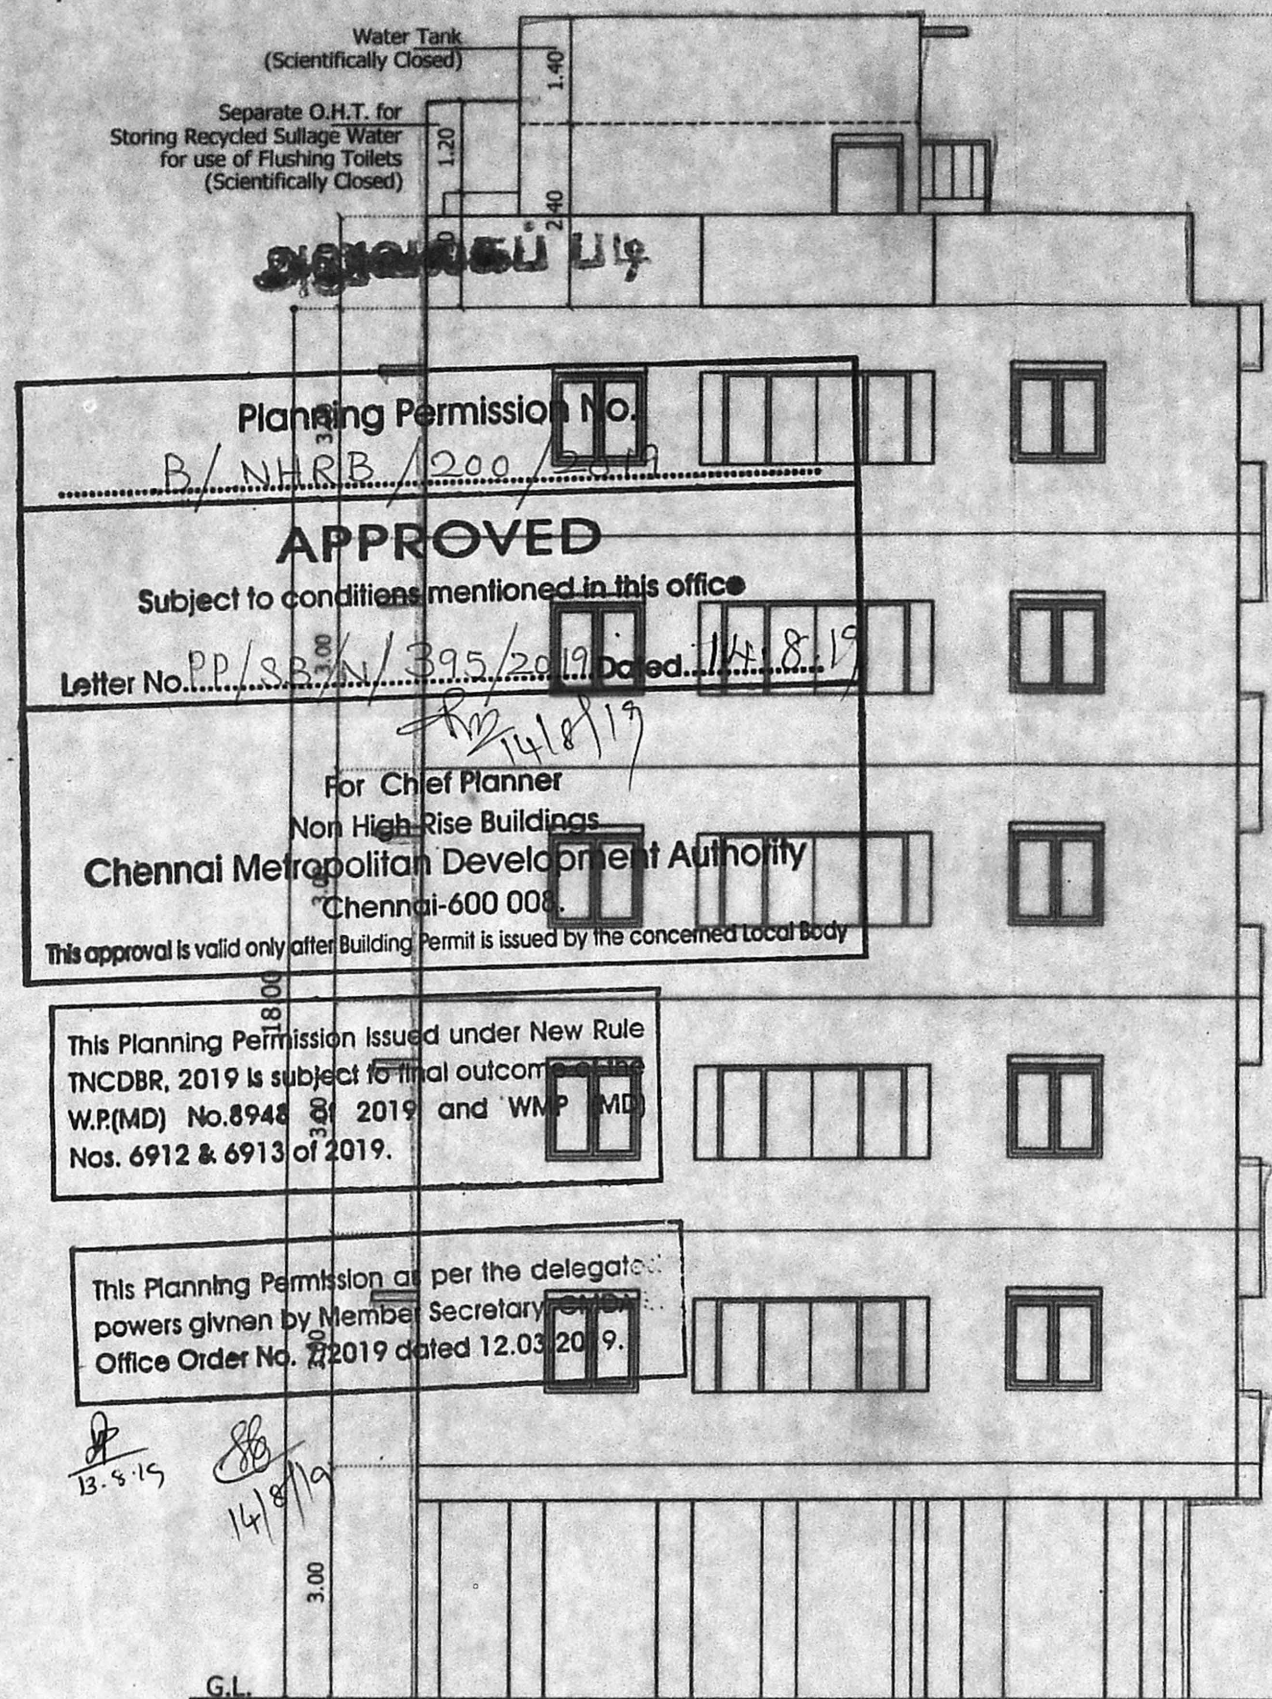 Water Tank
(Scientifically Closed)
1.40
Separate O.H.T. for
Storing Recycled Sullage Water
for use of Flushing Toilets
(Scientifically Closed)
1.20
2.40
Planning Permission No.
B/ NHRB /200/2019
APPROVED
Subject to conditions mentioned in this office
3.00
Letter No. PP/SB/N/395/2019 Dated. 14.8.19
14/8/19
For Chief Planner
Non High Rise Buildings
Chennai Metropolitan Development Authority
Chennai-600 008.
This approval is valid only after Building Permit is issued by the concerned Local Body
18.00
This Planning Permission Issued under New Rule
TNCDBR, 2019 is subject to final outcome of the
W.P.(MD) No.8948 of 2019 and WMP (MD)
Nos. 6912 & 6913 of 2019.
3.00
This Planning Permission as per the delegated
powers givnen by Member Secretary CMDA
Office Order No. 7/2019 dated 12.03.2019.
13.8.19
14/8/19
3.00
G.L.